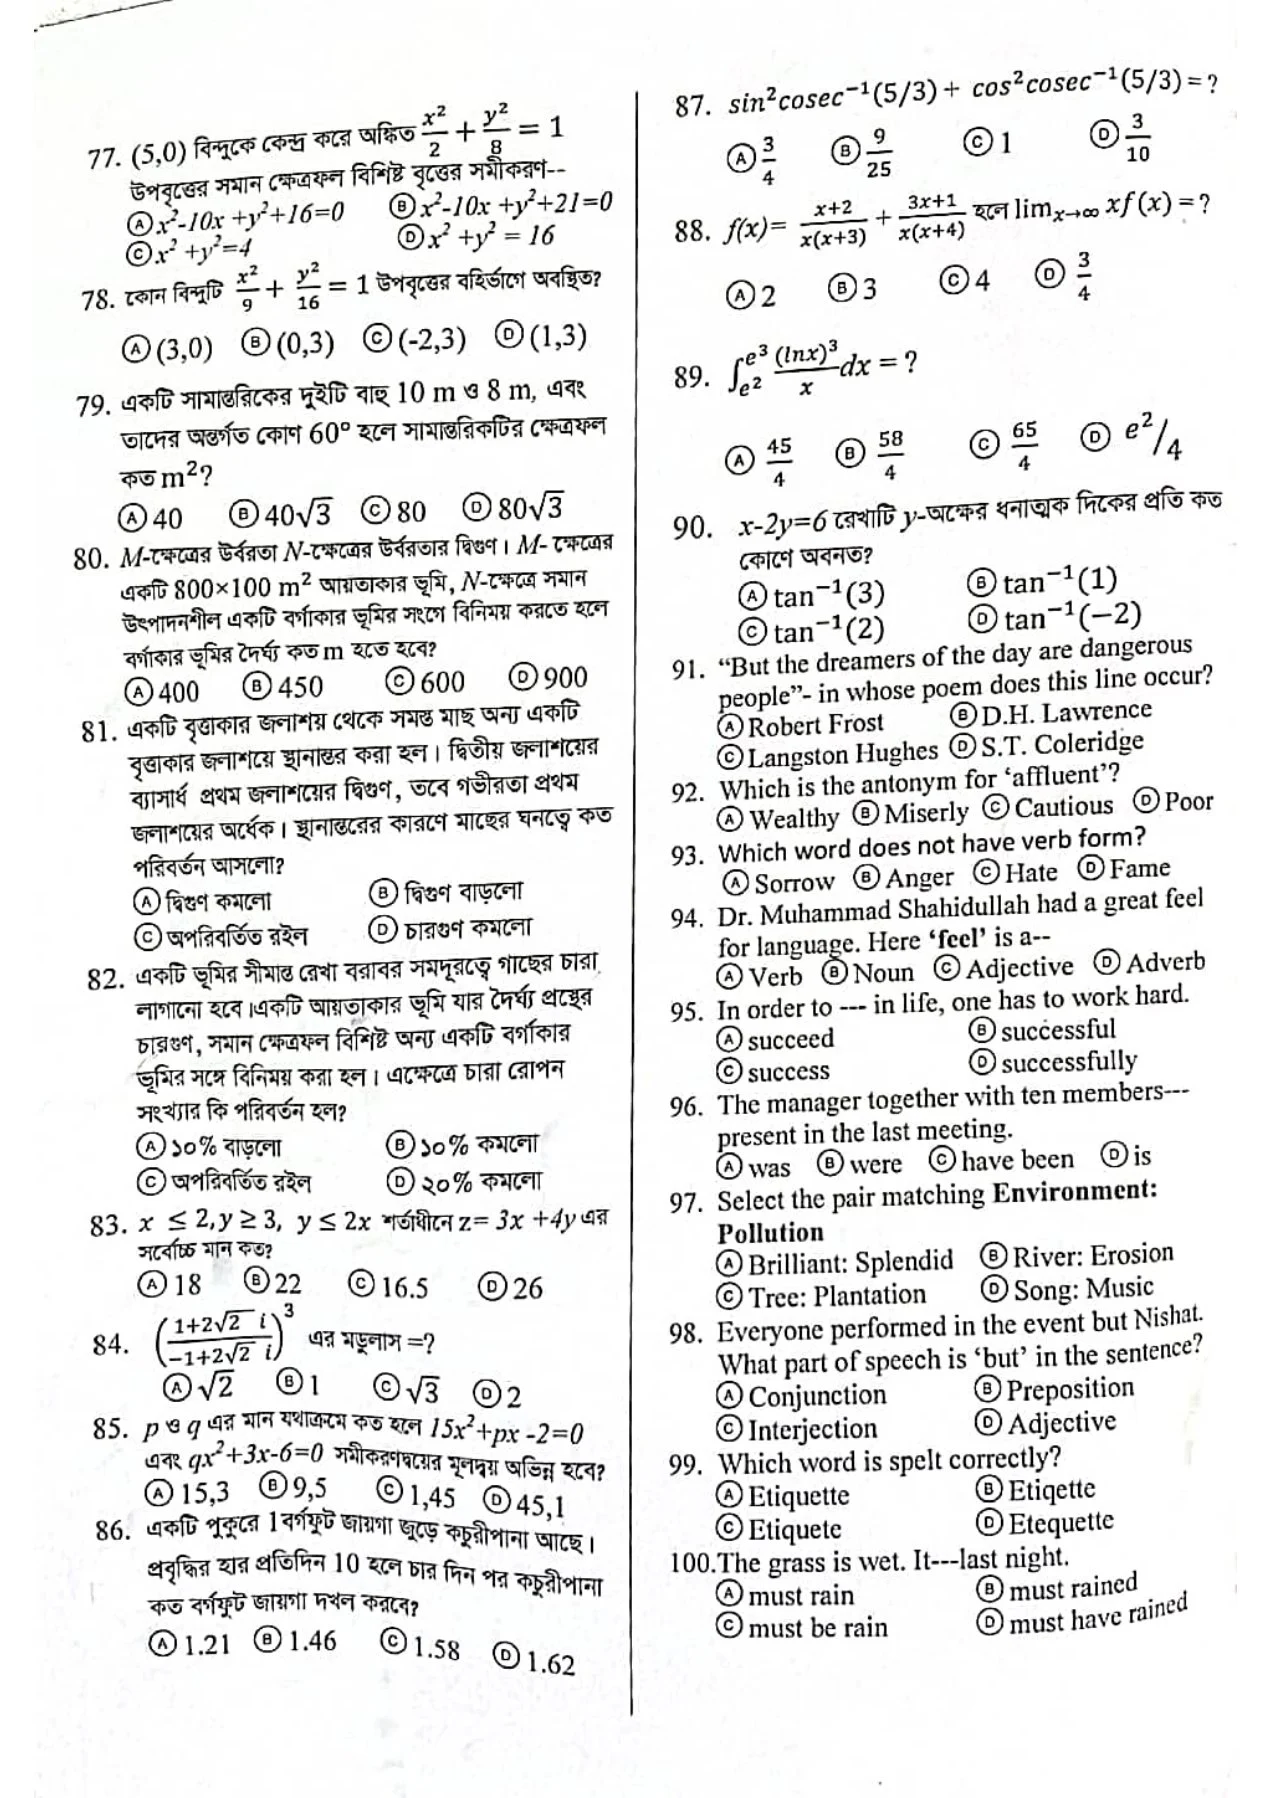 77. (5,0) বিন্দুকে কেন্দ্র করে অঙ্কিত x²/2 + y²/8 = 1
উপবৃত্তের সমান ক্ষেত্রফল বিশিষ্ট বৃত্তের সমীকরণ--
Ⓐ x²-10x +y²+16=0 Ⓑ x²-10x +y²+21=0
Ⓒ x² +y²=4 Ⓓ x² +y² = 16
78. কোন বিন্দুটি x²/9 + y²/16 = 1 উপবৃত্তের বহির্ভাগে অবস্থিত?
Ⓐ (3,0) Ⓑ (0,3) Ⓒ (-2,3) Ⓓ (1,3)
79. একটি সামান্তরিকের দুইটি বাহু 10 m ও 8 m, এবং
তাদের অন্তর্গত কোণ 60° হলে সামান্তরিকটির ক্ষেত্রফল
কত m²?
Ⓐ 40 Ⓑ 40√3 Ⓒ 80 Ⓓ 80√3
80. M-ক্ষেত্রের উর্বরতা N-ক্ষেত্রের উর্বরতার দ্বিগুণ। M- ক্ষেত্রের
একটি 800×100 m² আয়তাকার ভূমি, N-ক্ষেত্রে সমান
উৎপাদনশীল একটি বর্গাকার ভূমির সংগে বিনিময় করতে হলে
বর্গাকার ভূমির দৈর্ঘ্য কত m হতে হবে?
Ⓐ 400 Ⓑ 450 Ⓒ 600 Ⓓ 900
81. একটি বৃত্তাকার জলাশয় থেকে সমস্ত মাছ অন্য একটি
বৃত্তাকার জলাশয়ে স্থানান্তর করা হল। দ্বিতীয় জলাশয়ের
ব্যাসার্ধ প্রথম জলাশয়ের দ্বিগুণ, তবে গভীরতা প্রথম
জলাশয়ের অর্ধেক। স্থানান্তরের কারণে মাছের ঘনত্বে কত
পরিবর্তন আসলো?
Ⓐ দ্বিগুণ কমলো Ⓑ দ্বিগুণ বাড়লো
Ⓒ অপরিবর্তিত রইল Ⓓ চারগুণ কমলো
82. একটি ভূমির সীমান্ত রেখা বরাবর সমদূরত্বে গাছের চারা
লাগানো হবে।একটি আয়তাকার ভূমি যার দৈর্ঘ্য প্রস্থের
চারগুণ, সমান ক্ষেত্রফল বিশিষ্ট অন্য একটি বর্গাকার
ভূমির সঙ্গে বিনিময় করা হল। এক্ষেত্রে চারা রোপন
সংখ্যার কি পরিবর্তন হল?
Ⓐ ১০% বাড়লো Ⓑ ১০% কমলো
Ⓒ অপরিবর্তিত রইল Ⓓ ২০% কমলো
83. x ≤ 2, y ≥ 3, y ≤ 2x শর্তাধীনে z= 3x +4y এর
সর্বোচ্চ মান কত?
Ⓐ 18 Ⓑ 22 Ⓒ 16.5 Ⓓ 26
84. ((1+2√2 i)/(-1+2√2 i))³ এর মডুলাস =?
Ⓐ √2 Ⓑ 1 Ⓒ √3 Ⓓ 2
85. p ও q এর মান যথাক্রমে কত হলে 15x²+px -2=0
এবং qx²+3x-6=0 সমীকরণদ্বয়ের মূলদ্বয় অভিন্ন হবে?
Ⓐ 15,3 Ⓑ 9,5 Ⓒ 1,45 Ⓓ 45,1
86. একটি পুকুরে 1বর্গফুট জায়গা জুড়ে কচুরীপানা আছে।
প্রবৃদ্ধির হার প্রতিদিন 10 হলে চার দিন পর কচুরীপানা
কত বর্গফুট জায়গা দখল করবে?
Ⓐ 1.21 Ⓑ 1.46 Ⓒ 1.58 Ⓓ 1.62
87. sin²cosec⁻¹(5/3) + cos²cosec⁻¹(5/3) = ?
Ⓐ 3/4 Ⓑ 9/25 Ⓒ 1 Ⓓ 3/10
88. f(x)= (x+2)/(x(x+3)) + (3x+1)/(x(x+4)) হলে lim x→∞ xf(x) = ?
Ⓐ 2 Ⓑ 3 Ⓒ 4 Ⓓ 3/4
89. ∫_{e²}^{e³} (lnx)³/x dx = ?
Ⓐ 45/4 Ⓑ 58/4 Ⓒ 65/4 Ⓓ e²/4
90. x-2y=6 রেখাটি y-অক্ষের ধনাত্মক দিকের প্রতি কত
কোণে অবনত?
Ⓐ tan⁻¹(3) Ⓑ tan⁻¹(1)
Ⓒ tan⁻¹(2) Ⓓ tan⁻¹(−2)
91. “But the dreamers of the day are dangerous
people”- in whose poem does this line occur?
Ⓐ Robert Frost Ⓑ D.H. Lawrence
Ⓒ Langston Hughes Ⓓ S.T. Coleridge
92. Which is the antonym for ‘affluent’?
Ⓐ Wealthy Ⓑ Miserly Ⓒ Cautious Ⓓ Poor
93. Which word does not have verb form?
Ⓐ Sorrow Ⓑ Anger Ⓒ Hate Ⓓ Fame
94. Dr. Muhammad Shahidullah had a great feel
for language. Here ‘feel’ is a--
Ⓐ Verb Ⓑ Noun Ⓒ Adjective Ⓓ Adverb
95. In order to --- in life, one has to work hard.
Ⓐ succeed Ⓑ successful
Ⓒ success Ⓓ successfully
96. The manager together with ten members---
present in the last meeting.
Ⓐ was Ⓑ were Ⓒ have been Ⓓ is
97. Select the pair matching Environment:
Pollution
Ⓐ Brilliant: Splendid Ⓑ River: Erosion
Ⓒ Tree: Plantation Ⓓ Song: Music
98. Everyone performed in the event but Nishat.
What part of speech is ‘but’ in the sentence?
Ⓐ Conjunction Ⓑ Preposition
Ⓒ Interjection Ⓓ Adjective
99. Which word is spelt correctly?
Ⓐ Etiquette Ⓑ Etiqette
Ⓒ Etiquete Ⓓ Etequette
100.The grass is wet. It---last night.
Ⓐ must rain Ⓑ must rained
Ⓒ must be rain Ⓓ must have rained